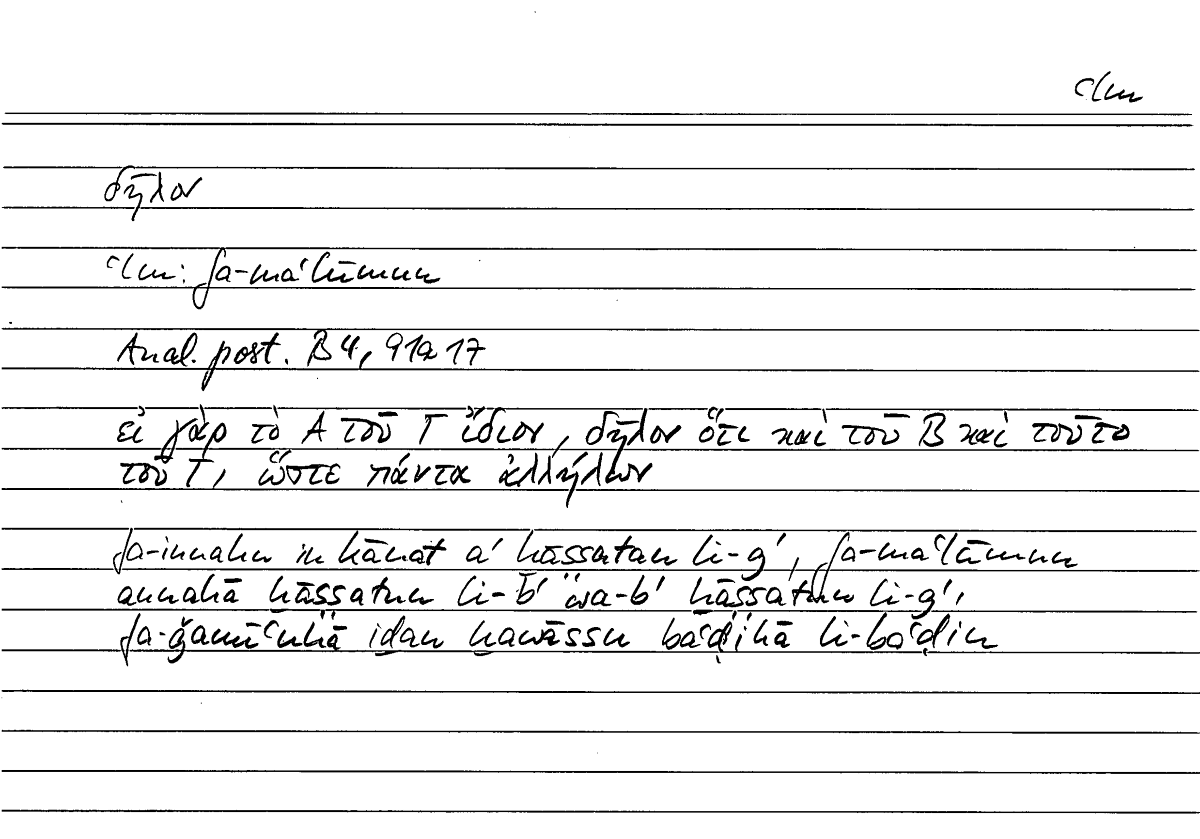 ʿlm
δῆλον
ʿlm: fa-maʿlūmun
Anal. post. B 4, 91a 17
εἰ γὰρ τὸ Α τοῦ Γ ἴδιον, δῆλον ὅτι καὶ τοῦ Β καὶ τοῦτο
τοῦ Γ, ὥστε πάντα ἀλλήλων
fa-innahu in kānat a' ḫāssatan li-g', fa-maʿlūmun
annahā ḫāssatun li-b' wa-b' ḫāssatun li-g',
fa-ǧamīʿuhā iḏan ḫawāssu baʿḍihā li-baʿḍin